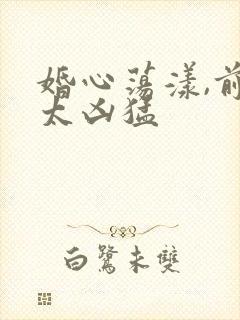 婚心荡漾,前
太凶猛
白鷺未雙